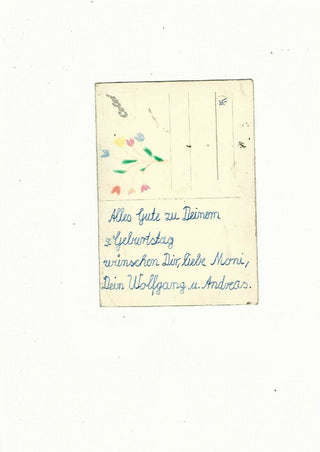 Alles Gute zu Deinem
Geburtstag
wünschen Dir, liebe Moni,
Dein Wolfgang u. Andreas.